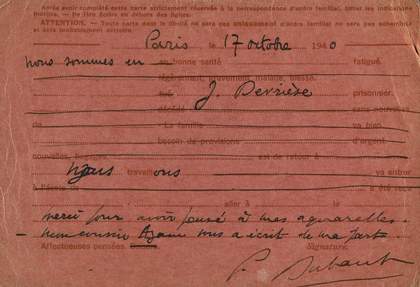 Après avoir complété cette carte strictement réservée à la correspondance d'ordre familial, biffer les indications
inutiles. — Ne rien écrire en dehors des lignes.
ATTENTION. — Toute carte dont le libellé ne sera pas uniquement d'ordre familial ne sera pas acheminée
et sera probablement détruite.
Paris le 17 octobre 1940
nous sommes en bonne santé fatigué.
légèrement, gravement malade, blessé.
tué J. Perrière prisonnier.
décédé sans nouvelles
de La famille va bien
besoin de provisions d'argent.
nouvelles, est de retour à
nous travaillons va entrer
à l'école de a été reçu
aller à le
merci pour avoir pensé à mes aquarelles.
— mon cousin vous a écrit de ma part
Affectueuses pensées. Signature.
P. Dubaut